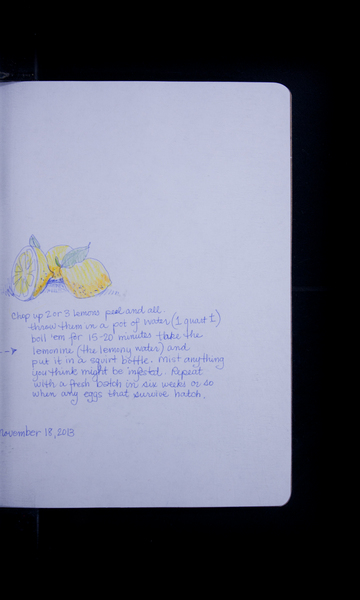 Chop up 2 or 3 lemons peel and all
throw them in a pot of water (1 quart)
boil 'em for 15-20 minutes take the
lemonine (the lemony water) and
put it in a squirt bottle. Mist anything
you think might be infested. Repeat
with a fresh batch in six weeks or so
when any eggs that survive hatch.
November 18, 2013